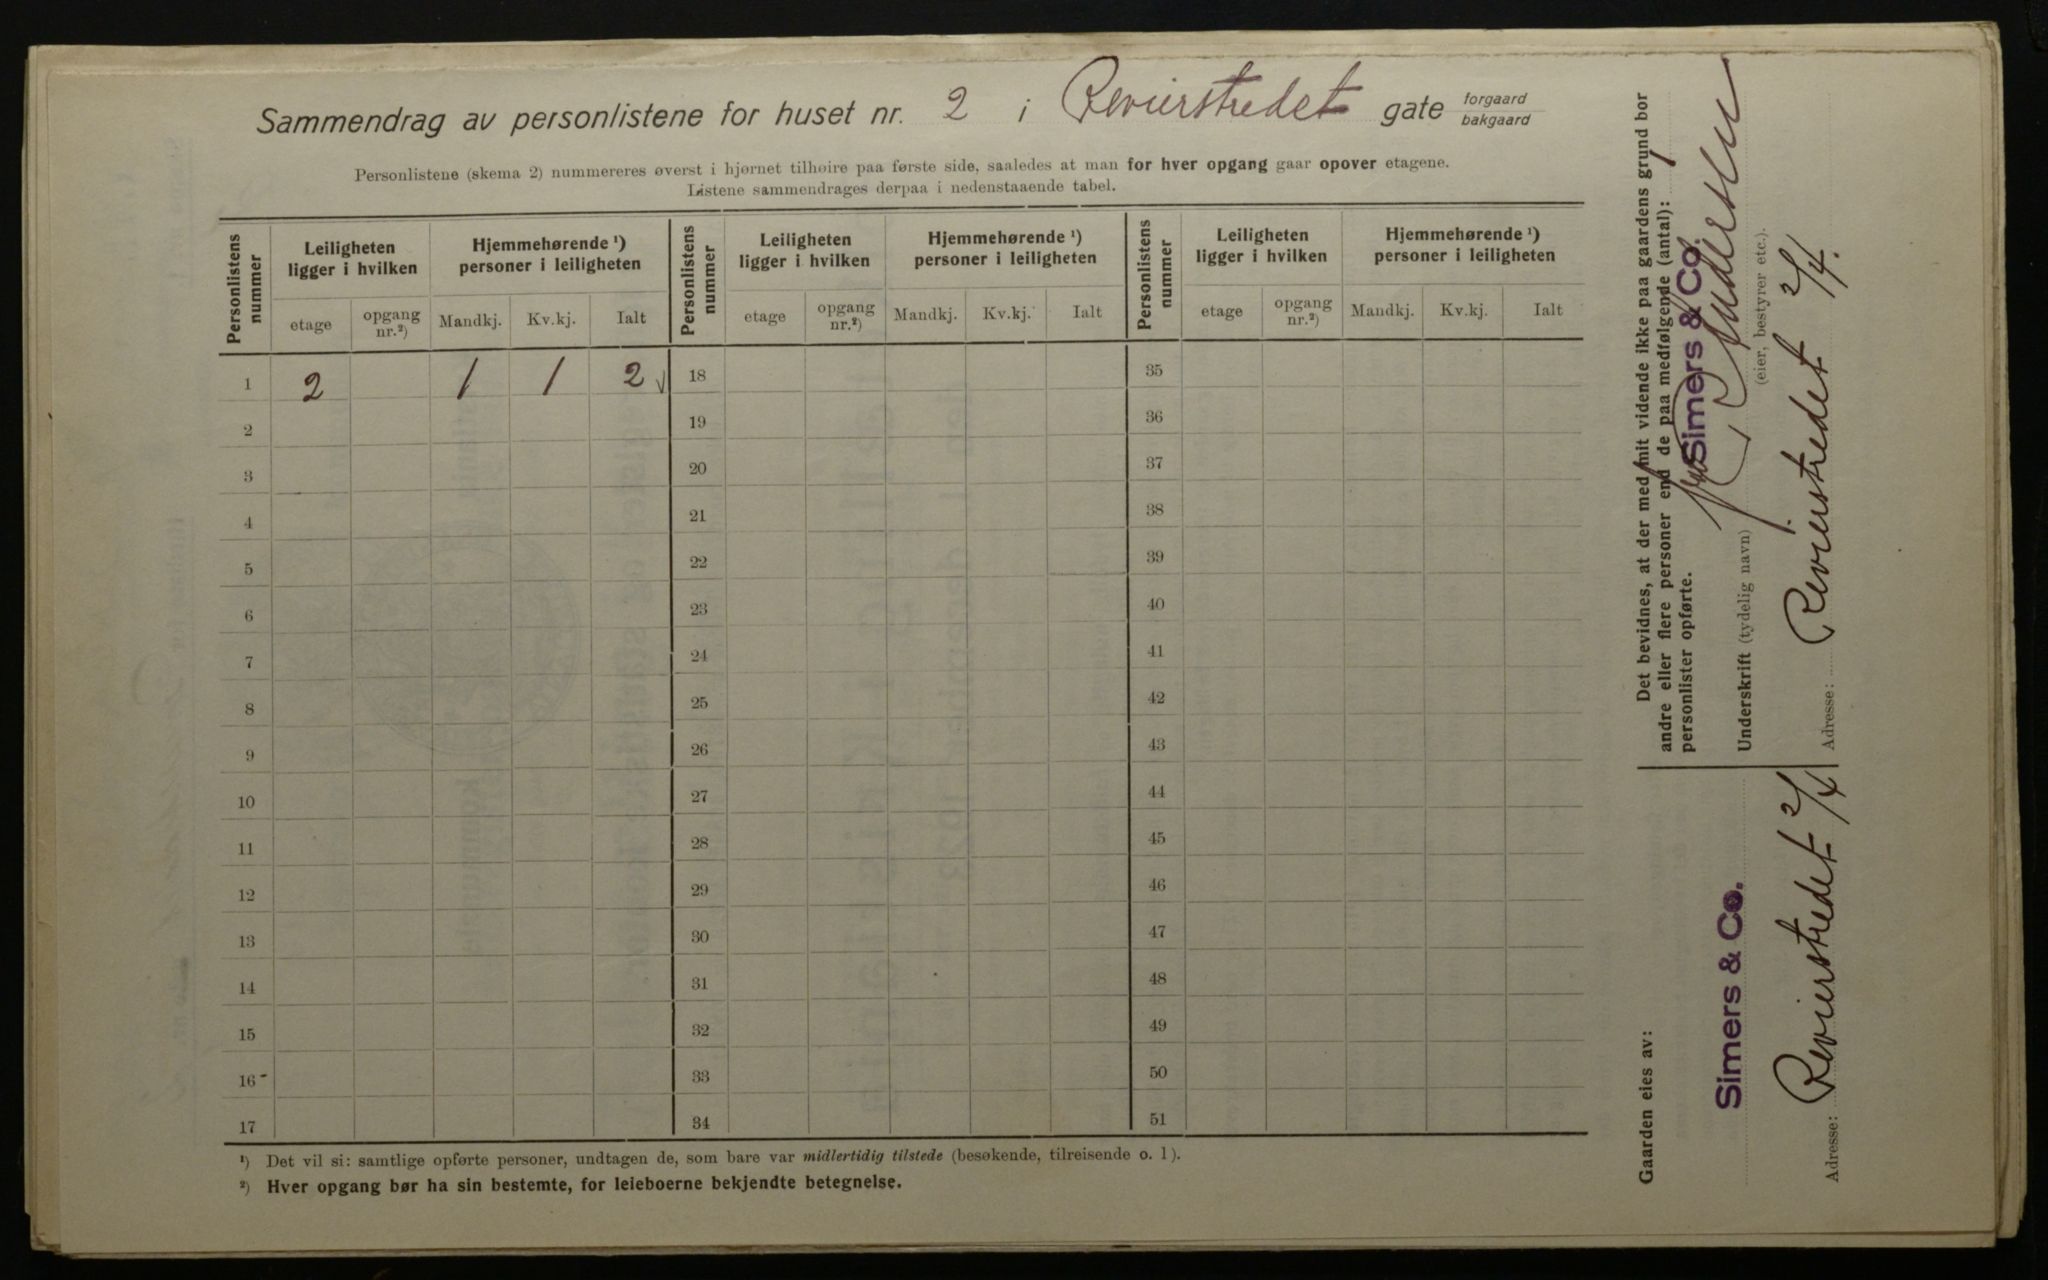 Sammendrag av personlistene for huset nr. 2 i Revierstredet gate forgaard bakgaard
Personlistene (skema 2) nummereres øverst i hjørnet tilhøire paa første side, saaledes at man for hver opgang gaar opover etagene.
Listene sammendrages derpaa i nedenstaaende tabel.
Personlistens nummer
Leiligheten ligger i hvilken
Hjemmehørende ¹) personer i leiligheten
Personlistens nummer
Leiligheten ligger i hvilken
Hjemmehørende ¹) personer i leiligheten
Personlistens nummer
Leiligheten ligger i hvilken
Hjemmehørende ¹) personer i leiligheten
etage opgang nr.²) Mandkj. Kv.kj. Ialt etage opgang nr.²) Mandkj. Kv.kj. Ialt etage opgang nr.²) Mandkj. Kv.kj. Ialt
1 2 1 1 2 18 35
2 19 36
3 20 37
4 21 38
5 22 39
6 23 40
7 24 41
8 25 42
9 26 43
10 27 44
11 28 45
12 29 46
13 30 47
14 31 48
15 32 49
16 33 50
17 34 51
¹) Det vil si: samtlige opførte personer, undtagen de, som bare var midlertidig tilstede (besøkende, tilreisende o. l).
²) Hver opgang bør ha sin bestemte, for leieboerne bekjendte betegnelse.
Det bevidnes, at der med mit vidende ikke paa gaardens grund bor
andre eller flere personer end de paa medfølgende (antal): 1
personlister opførte.
Simers & Co.
Underskrift (tydelig navn)
(eier, bestyrer etc.).
Adresse: Revierstredet 2/4.
Gaarden eies av:
Simers & Co.
Adresse: Revierstredet 2/4